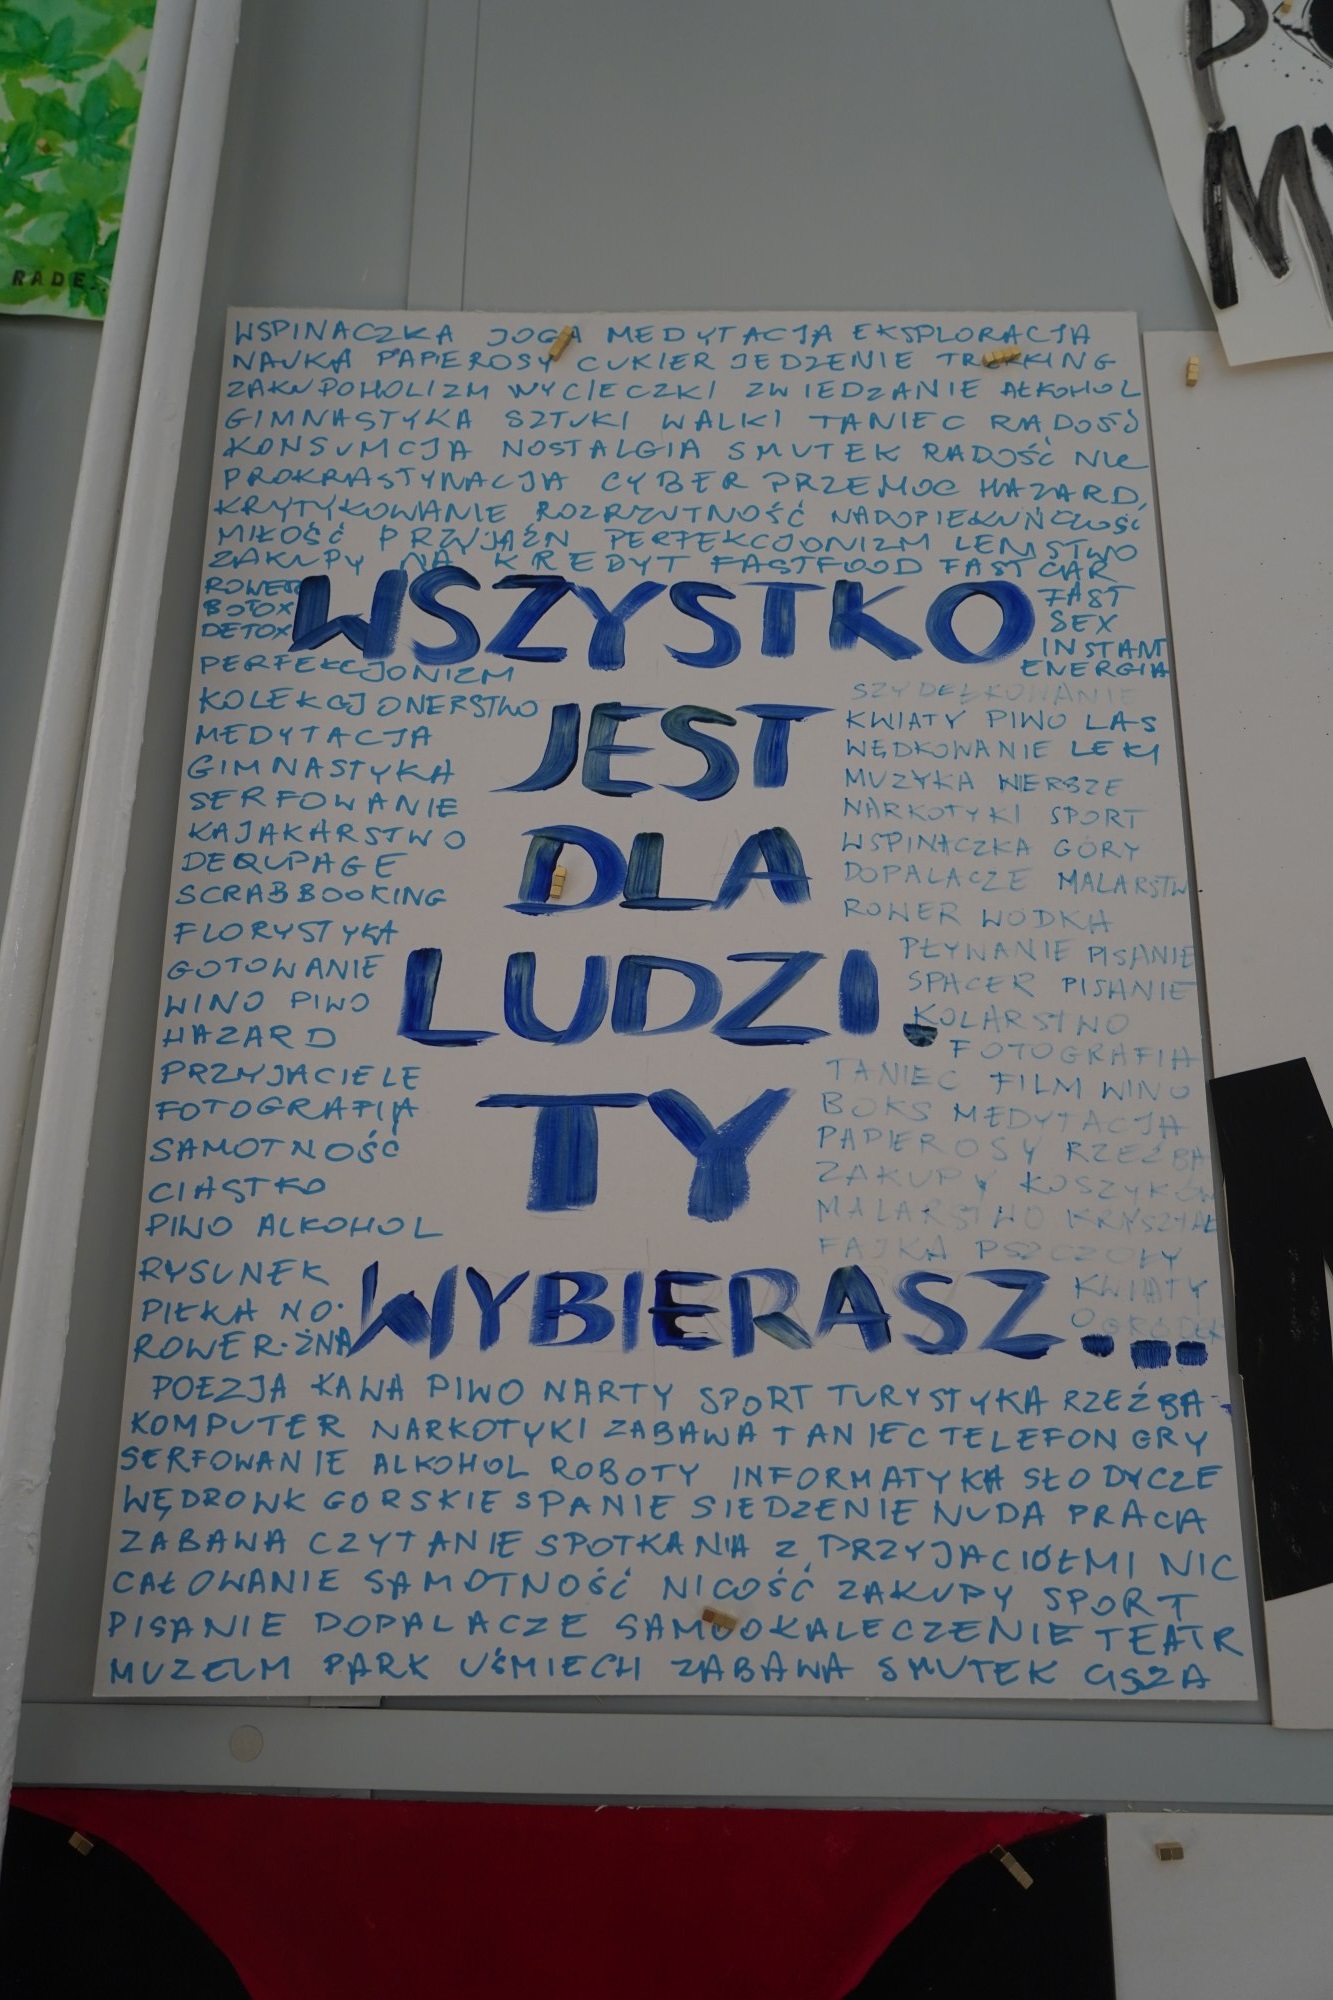 RADE
WSPINACZKA JOGA MEDYTACJA EKSPLORACJA
NAUKA PAPIEROSY CUKIER JEDZENIE TREKKING
ZAKUPOHOLIZM WYCIECZKI ZWIEDZANIE AŁKOHOL
GIMNASTYKA SZTUKI WALKI TANIEC RADOŚĆ
KONSUMCJA NOSTALGIA SMUTEK RADOŚĆ NIC
PROKRASTYNACJA CYBER PRZEMOC HAZARD,
KRYTYKOWANIE ROZRZUTNOŚĆ NADOPIEKUŃCZOŚĆ
MIŁOŚĆ PRZYJAŹN PERFEKCJONIZM LENISTWO
ZAKUPY NA KREDYT FASTFOOD FAST CAR
ROWER
BOTOX
DETOX
FAST
SEX
INSTANT
ENERGIA
WSZYSTKO
JEST
DLA
LUDZI.
TY
WYBIERASZ...
PERFEKCJONIZM
KOLEKCJONERSTWO
MEDYTACJA
GIMNASTYKA
SERFOWANIE
KAJAKARSTWO
DEQUPAGE
SCRABBOOKING
FLORYSTYKA
GOTOWANIE
WINO PIWO
HAZARD
PRZYJACIELE
FOTOGRAFIA
SAMOTNOŚĆ
CIASTKO
PIWO ALKOHOL
RYSUNEK
PIŁKA NO.
ROWER.ŻNA
SZYDEŁKOWANIE
KWIATY PIWO LAS
WĘDKOWANIE LEKI
MUZYKA WIERSZE
NARKOTYKI SPORT
WSPINACZKA GÓRY
DOPALACZE MALARSTW
ROWER WÓDKA
PŁYWANIE PISANIE
SPACER PISANIE
KOLARSTWO
FOTOGRAFIA
TANIEC FILM WINO
BOKS MEDYTACJA
PAPIEROSY RZEŹBA
ZAKUPY KOSZYKÓW
MALARSTWO KRYSZTAŁ
FAJKA PSZCZOŁY
KWIATY
OGRÓDEK
POEZJA KAWA PIWO NARTY SPORT TURYSTYKA RZEŹBA
KOMPUTER NARKOTYKI ZABAWA TANIEC TELEFON GRY
SERFOWANIE ALKOHOL ROBOTY INFORMATYKA SŁODYCZE
WĘDROWK GORSKIE SPANIE SIEDZENIE NUDA PRACA
ZABAWA CZYTANIE SPOTKANIA Z PRZYJACIÓŁMI NIC
CAŁOWANIE SAMOTNOŚĆ NICOŚĆ ZAKUPY SPORT
PISANIE DOPALACZE SAMOOKALECZENIE TEATR
MUZEUM PARK UŚMIECH ZABAWA SMUTEK CISZA